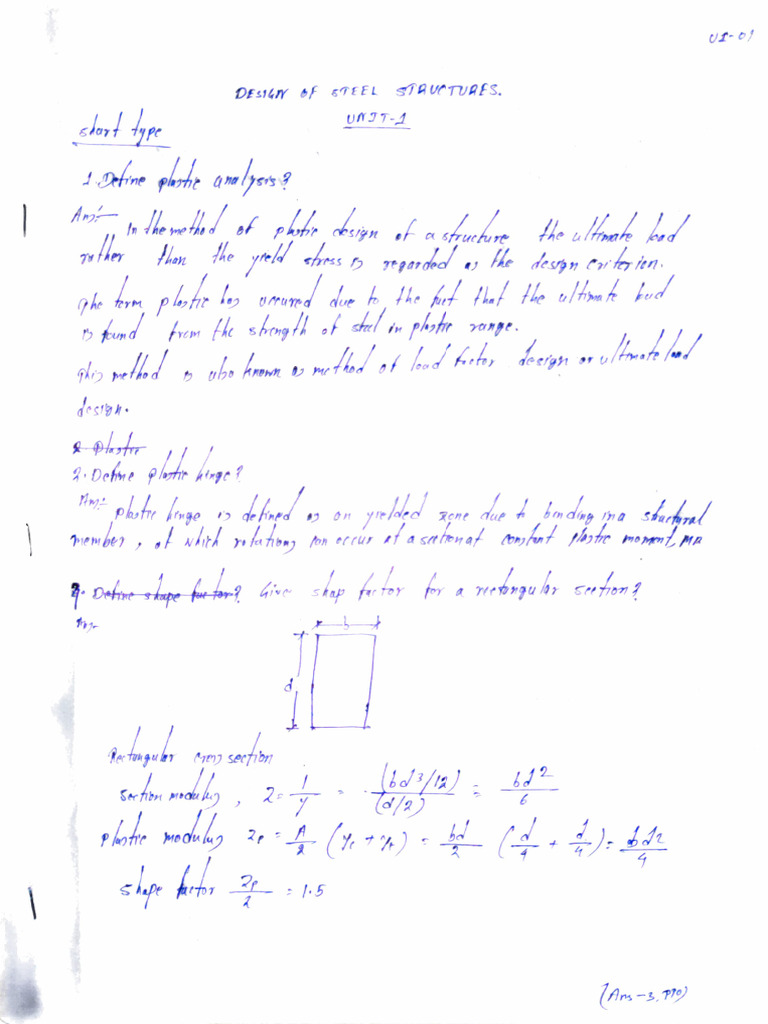 U1-01
DESIGN OF STEEL STRUCTURES.
UNIT-1
short type
1. Define plastic analysis?
Ans:- In the method of plastic design of a structure the ultimate load
rather than the yield stress is regarded as the design criterion.
The term plastic has occured due to the fact that the ultimate load
is found from the strength of steel in plastic range.
This method is also known as method of load factor design or ultimate load
design.
2 Plastic
2. Define plastic hinge?
Ans:- Plastic hinge is defined as an yielded zone due to bending in a structural
member, at which rotations can occur at a section at constant plastic moment, MP
7. Define shape factor? Give shap factor for a rectangular section?
Ans:-
b
d
Rectangular cross section
section modulus, Z = I/y = (bd3/12)/(d/2) = bd2/6
plastic modulus Zp = A/2 (yc + yt) = bd/2 (d/4 + d/4) = bd2/4
shape factor Zp/Z = 1.5
(Ans-3. PTO)